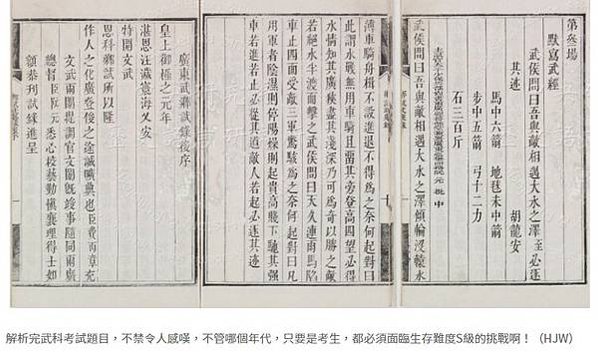 第叄塲
默寫武經
武侯問曰吾與敵相遇大水之澤至必逐
其迹 胡龍安
馬中六箭 地毬未中箭
步中五箭 弓十二力
石三百斤
元 批 中
武侯問曰吾與敵相遇大水之澤傾輪沒轅水
薄車騎舟楫不設進退不得爲之奈何起對曰
此謂水戰無用車騎且留其旁登高四望必得
水情知其廣狹盡其淺深乃可爲奇以勝之敵
若絕水半渡而擊之武侯問曰天久連雨馬陷
車止四面受敵三軍驚駭爲之奈何起對曰凡
用車者陰濕則停陽燥則起貴高賤下馳其强
車若進若止必從其道敵人若起必逐其迹
廣東武鄉試錄後序
皇上御極之元年
湛恩汪濊寰海乂安
特開文武
恩科鄉試所以隆
作人之化廣登俊之途誠曠典也臣費丙章充
文武兩闈提調官文闈旣竣事隨同兩廣
總督臣阮元悉心校藝勤愼襄理得士如
額恭刋試錄進呈
解析完武科考試題目，不禁令人感嘆，不管哪個年代，只要是考生，都必須面臨生存難度S級的挑戰啊！（HJW）